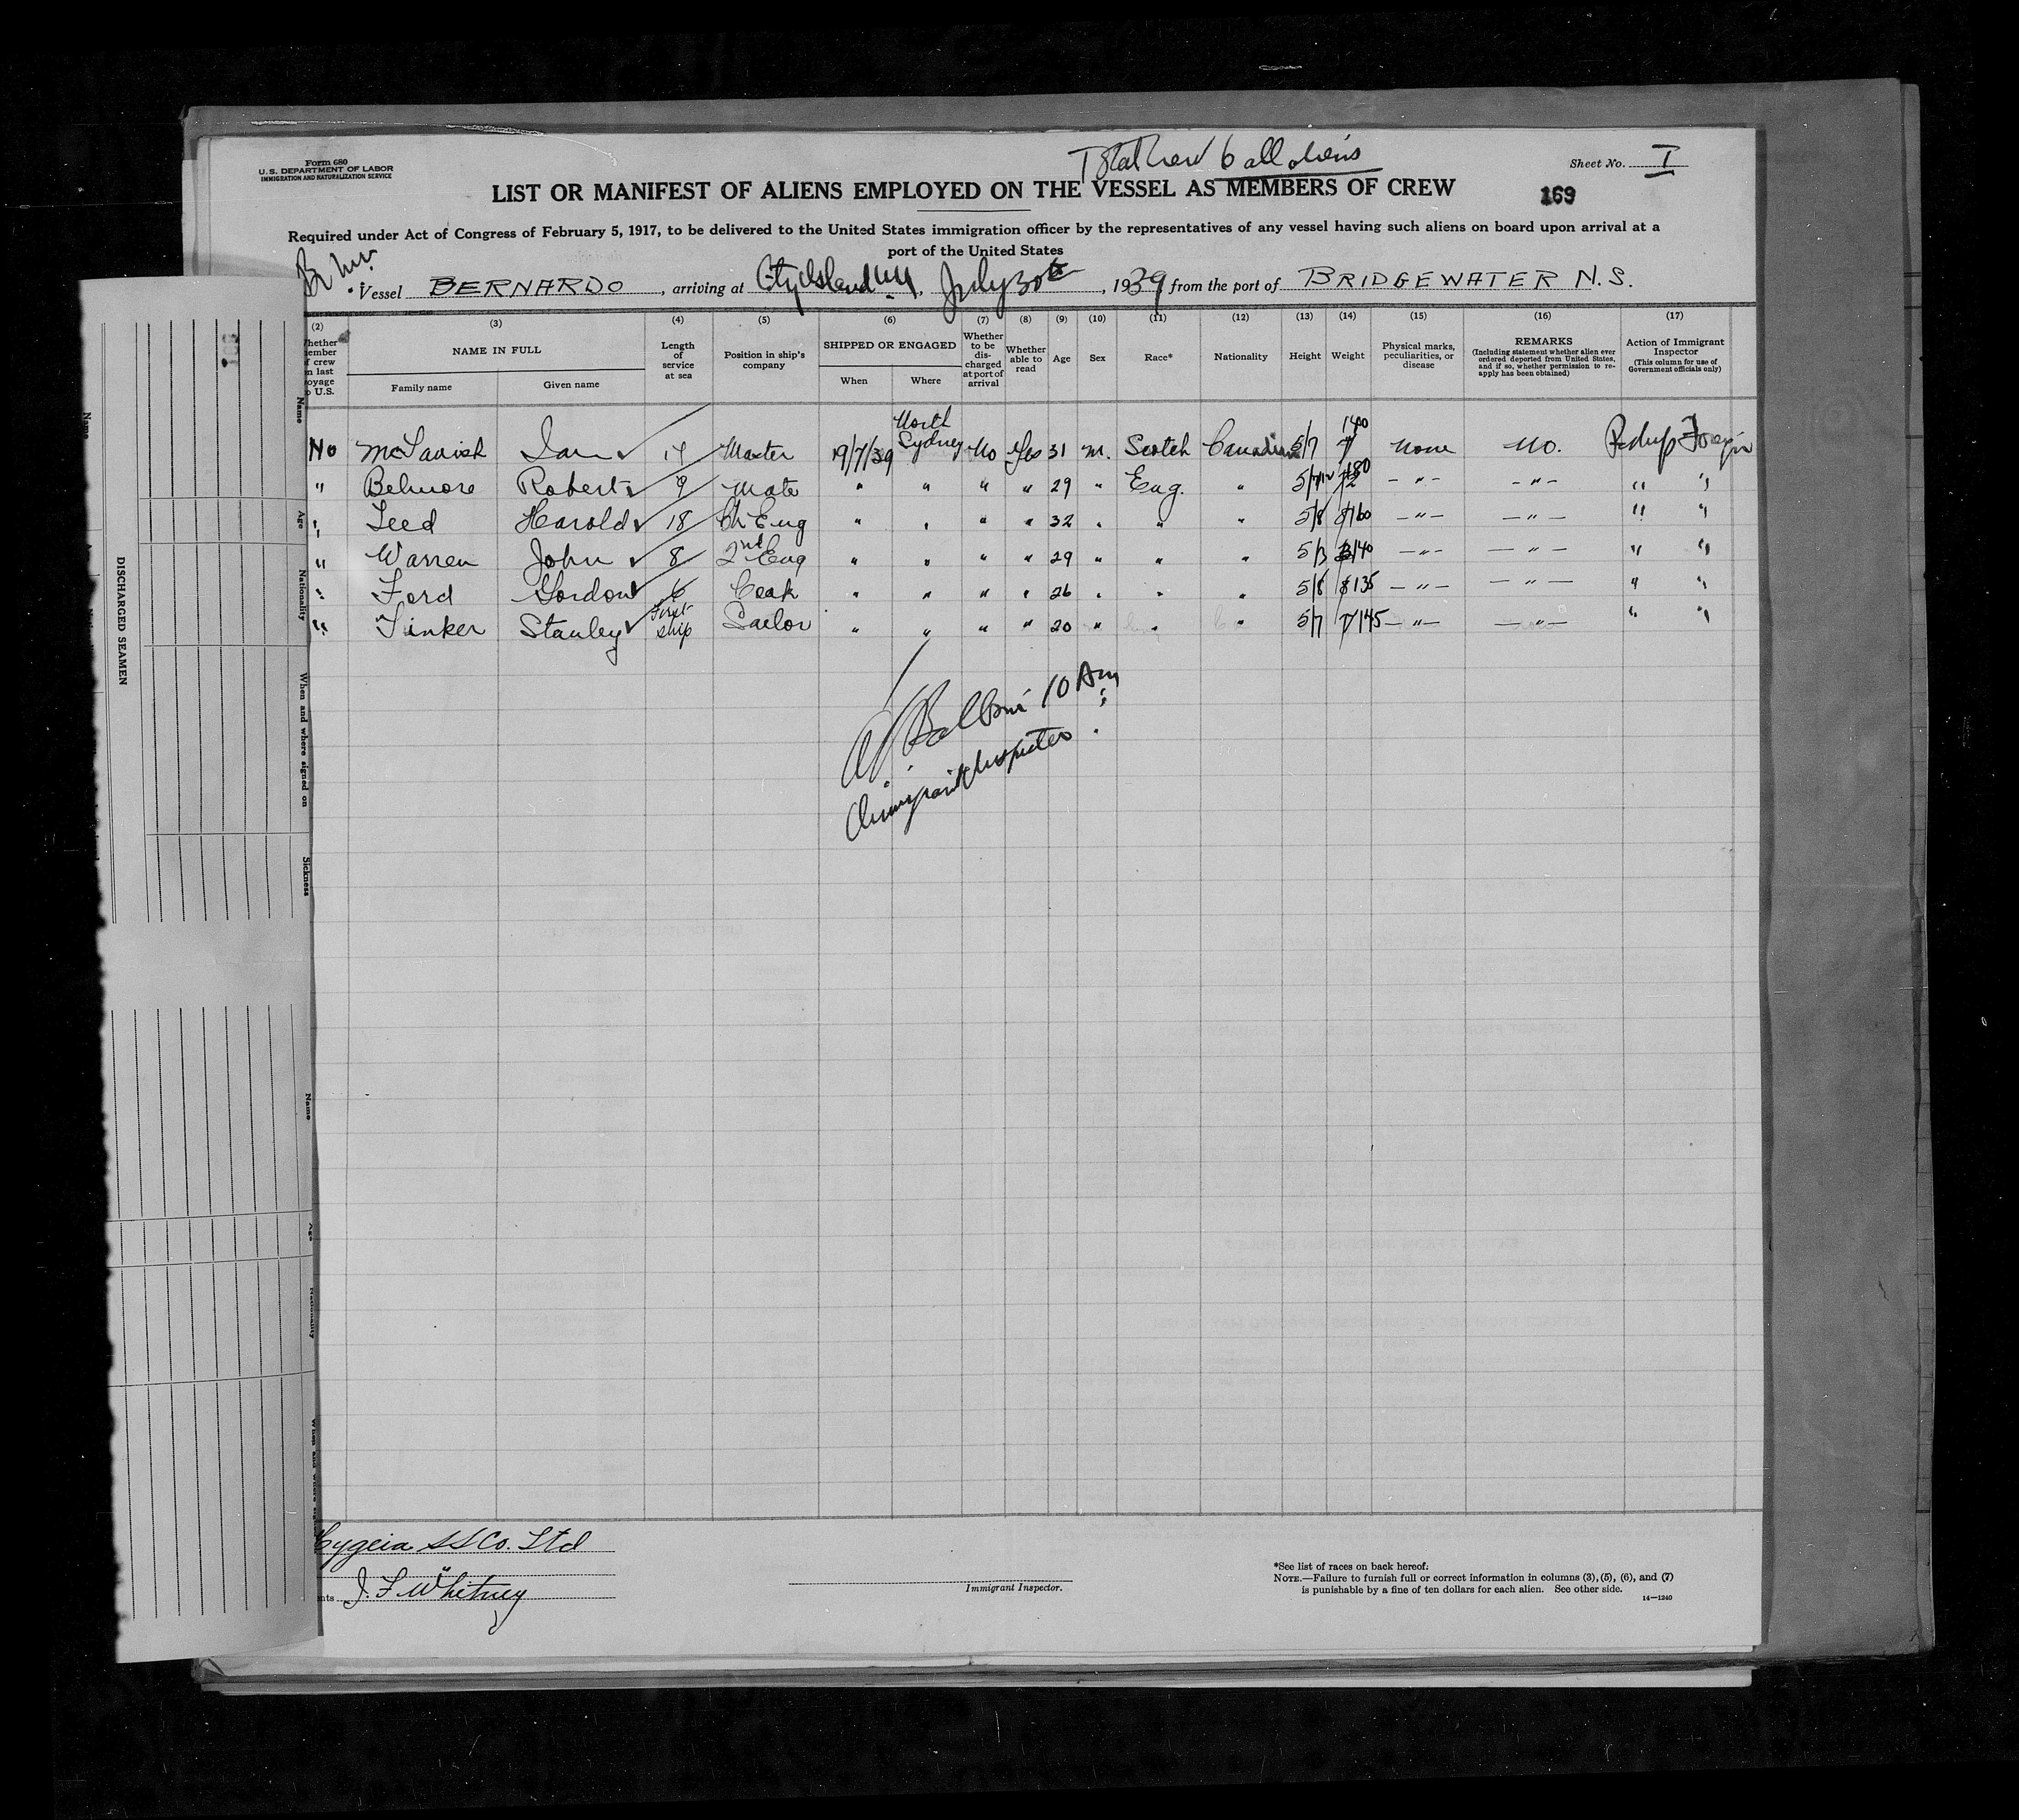 Form 680
U.S. DEPARTMENT OF LABOR
IMMIGRATION AND NATURALIZATION SERVICE
Total Crew 6 all aliens
Sheet No. I
LIST OR MANIFEST OF ALIENS EMPLOYED ON THE VESSEL AS MEMBERS OF CREW
169
Required under Act of Congress of February 5, 1917, to be delivered to the United States immigration officer by the representatives of any vessel having such aliens on board upon arrival at a
port of the United States
Vessel BERNARDO, arriving at City Island N.Y. July 30th, 1939 from the port of BRIDGEWATER N.S.
(2) (3) (4) (5) (6) (7) (8) (9) (10) (11) (12) (13) (14) (15) (16) (17)
NAME IN FULL
Family name
Given name
Length of service at sea
Position in ship's company
SHIPPED OR ENGAGED
When
Where
Whether to be discharged at port of arrival
Whether able to read
Age
Sex
Race*
Nationality
Height
Weight
Physical marks, peculiarities, or disease
REMARKS
(Including statement whether alien ever ordered deported from United States, and if so, whether permission to reapply has been obtained)
Action of Immigrant Inspector
(This column for use of Government officials only)
No McTavish Ian 14 Master 19/7/39 North Sydney No Yes 31 m. Scotch Canadian 5/7 140 None No.
" Belmore Robert 9 Mate " " " " 29 " Eng. " 180 - " - - " - " "
" Leed Harold 18 Ch Eng " " " " 32 " " " 5/8 160 - " - - " - " "
" Warren John 8 2nd Eng " " " " 29 " " " 5/3 140 - " - - " - " "
" Ford Gordon 6 Cook " " " " 26 " " " 5/8 135 - " - - " - " "
" Tinker Stanley First ship Sailor " " " " 20 " " " 5/7 145 - " - - " - " "
10 Am
Immigrant Inspector
DISCHARGED SEAMEN
Name
Age
Nationality
When and where signed on
Sickness
Name
Age
Nationality
SS Co. Ltd
J. F. Whitney
Immigrant Inspector.
*See list of races on back hereof.
NOTE.—Failure to furnish full or correct information in columns (3), (5), (6), and (7)
is punishable by a fine of ten dollars for each alien. See other side.
14—1240